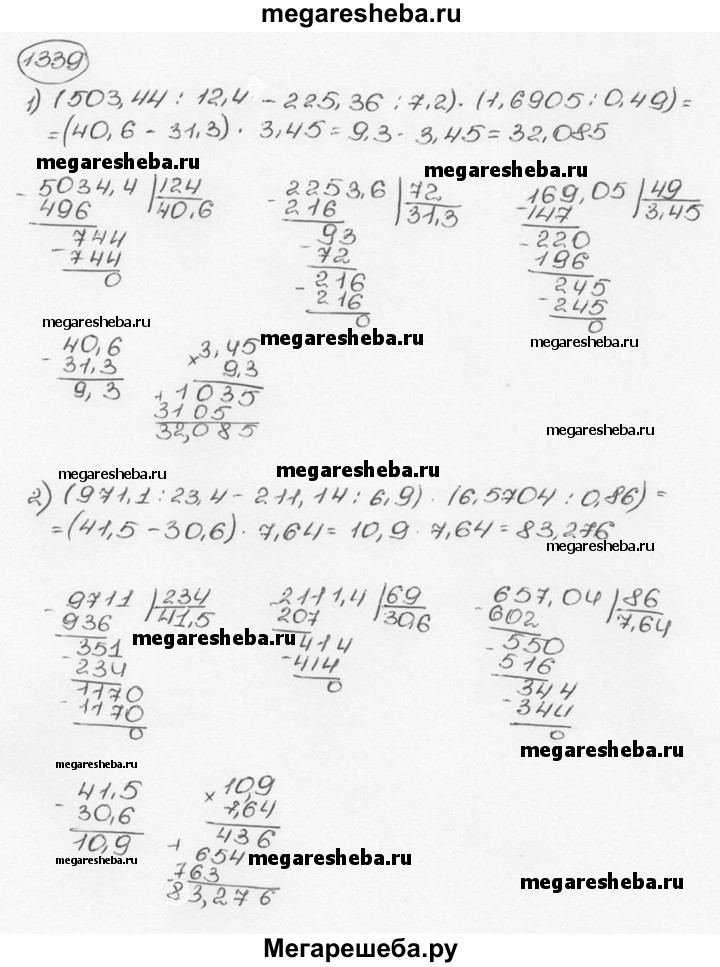 megaresheba.ru
1339
1) (503,44 : 12,4 - 225,36 : 7,2) · (1,6905 : 0,49) =
= (40,6 - 31,3) · 3,45 = 9,3 · 3,45 = 32,085
megaresheba.ru megaresheba.ru
5034,4 | 124 2253,6 | 72 169,05 | 49
- 496 40,6 - 216 31,3 - 147 3,45
744 93 - 220
- 744 - 72 196
0 - 216 245
216 - 245
0 0
megaresheba.ru megaresheba.ru megaresheba.ru
- 40,6 × 3,45
31,3 9,3
9,3 + 1035
3105
32,085
megaresheba.ru
megaresheba.ru megaresheba.ru
2) (971,1 : 23,4 - 211,14 : 6,9) · (6,5704 : 0,86) =
= (41,5 - 30,6) · 7,64 = 10,9 · 7,64 = 83,276
megaresheba.ru
- 9711 | 234 - 2111,4 | 69 - 657,04 | 86
936 41,5 207 30,6 602 7,64
- 351 414 - 550
234 - 414 516
1170 0 344
- 1170 - 344
0 0
megaresheba.ru
megaresheba.ru
megaresheba.ru
- 41,5 × 10,9
30,6 7,64
10,9 436
+ 654
763
83,276
megaresheba.ru megaresheba.ru
megaresheba.ru
Мегарешеба.ру